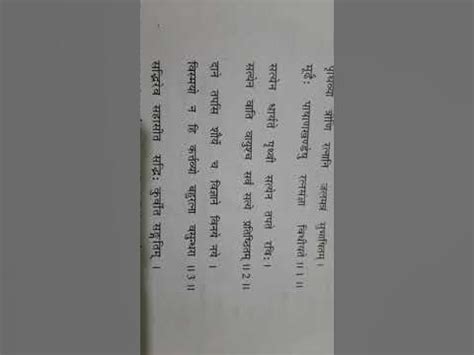 पृथिव्यां त्रीणि रत्नानि जलमन्नं सुभाषितम् ।
मूढैः पाषाणखण्डेषु रत्नसंज्ञा विधीयते ॥1॥
सत्येन धार्यते पृथ्वी सत्येन तपते रविः ।
सत्येन वाति वायुश्च सर्वं सत्ये प्रतिष्ठितम् ॥2॥
दाने तपसि शौर्ये च विज्ञाने विनये नये ।
विस्मयो न हि कर्त्तव्यो बहुरत्ना वसुन्धरा ॥3॥
सद्भिरेव सहासीत सद्भिः कुर्वीत सङ्गतिम् ।